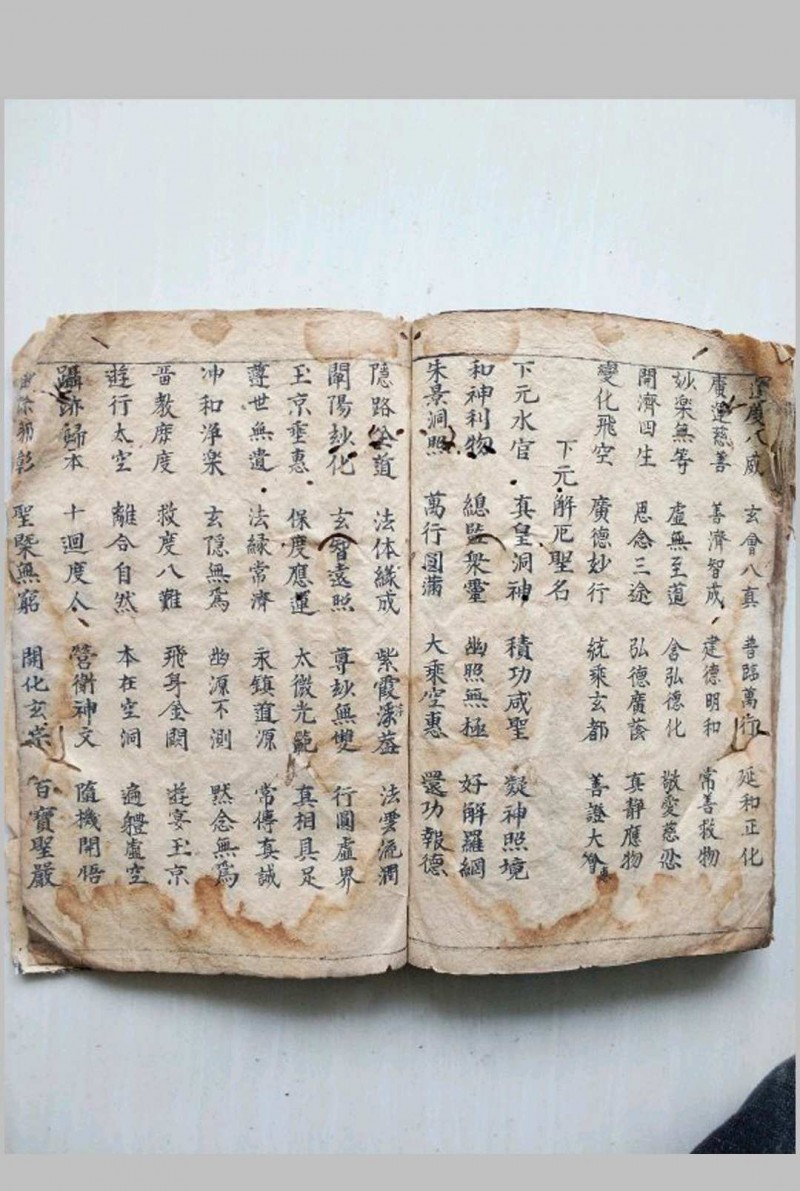 運度八威 玄會八真 普臨萬行 延和正化
廣運慈善 善濟智成 建德明和 常善救物
妙樂無等 虛無至道 含弘德化 敬愛慈忍
開濟四生 思念三途 弘德廣蔭 真靜應物
變化飛空 廣德妙行 統乘玄都 善證大會
下元解厄聖名
下元水官 真皇洞神 積功咸聖 凝神照境
和神利物 總監衆靈 幽照無極 好解羅網
朱景洞照 萬行圓滿 大乘空惠 還功報德
隱路全道 法体緣成 紫霞藻蓋 法雲流潤
闡陽玅化 玄智遠照 尊玅無雙 行圓虛界
玉京垂惠 保度應運 太微光範 真相具足
尊世無遺 法緑常濟 永鎮道源 常傳真誠
冲和淨樂 玄隱無為 幽源不測 默念無為
晋教靡度 救度八難 飛身金闕 遊宴玉京
遊行太空 離合自然 本在空洞 遍體虛空
躡跡歸本 十迴度人 營衛神文 隨機開悟
聖槩無窮 開化玄宗 百寶聖嚴